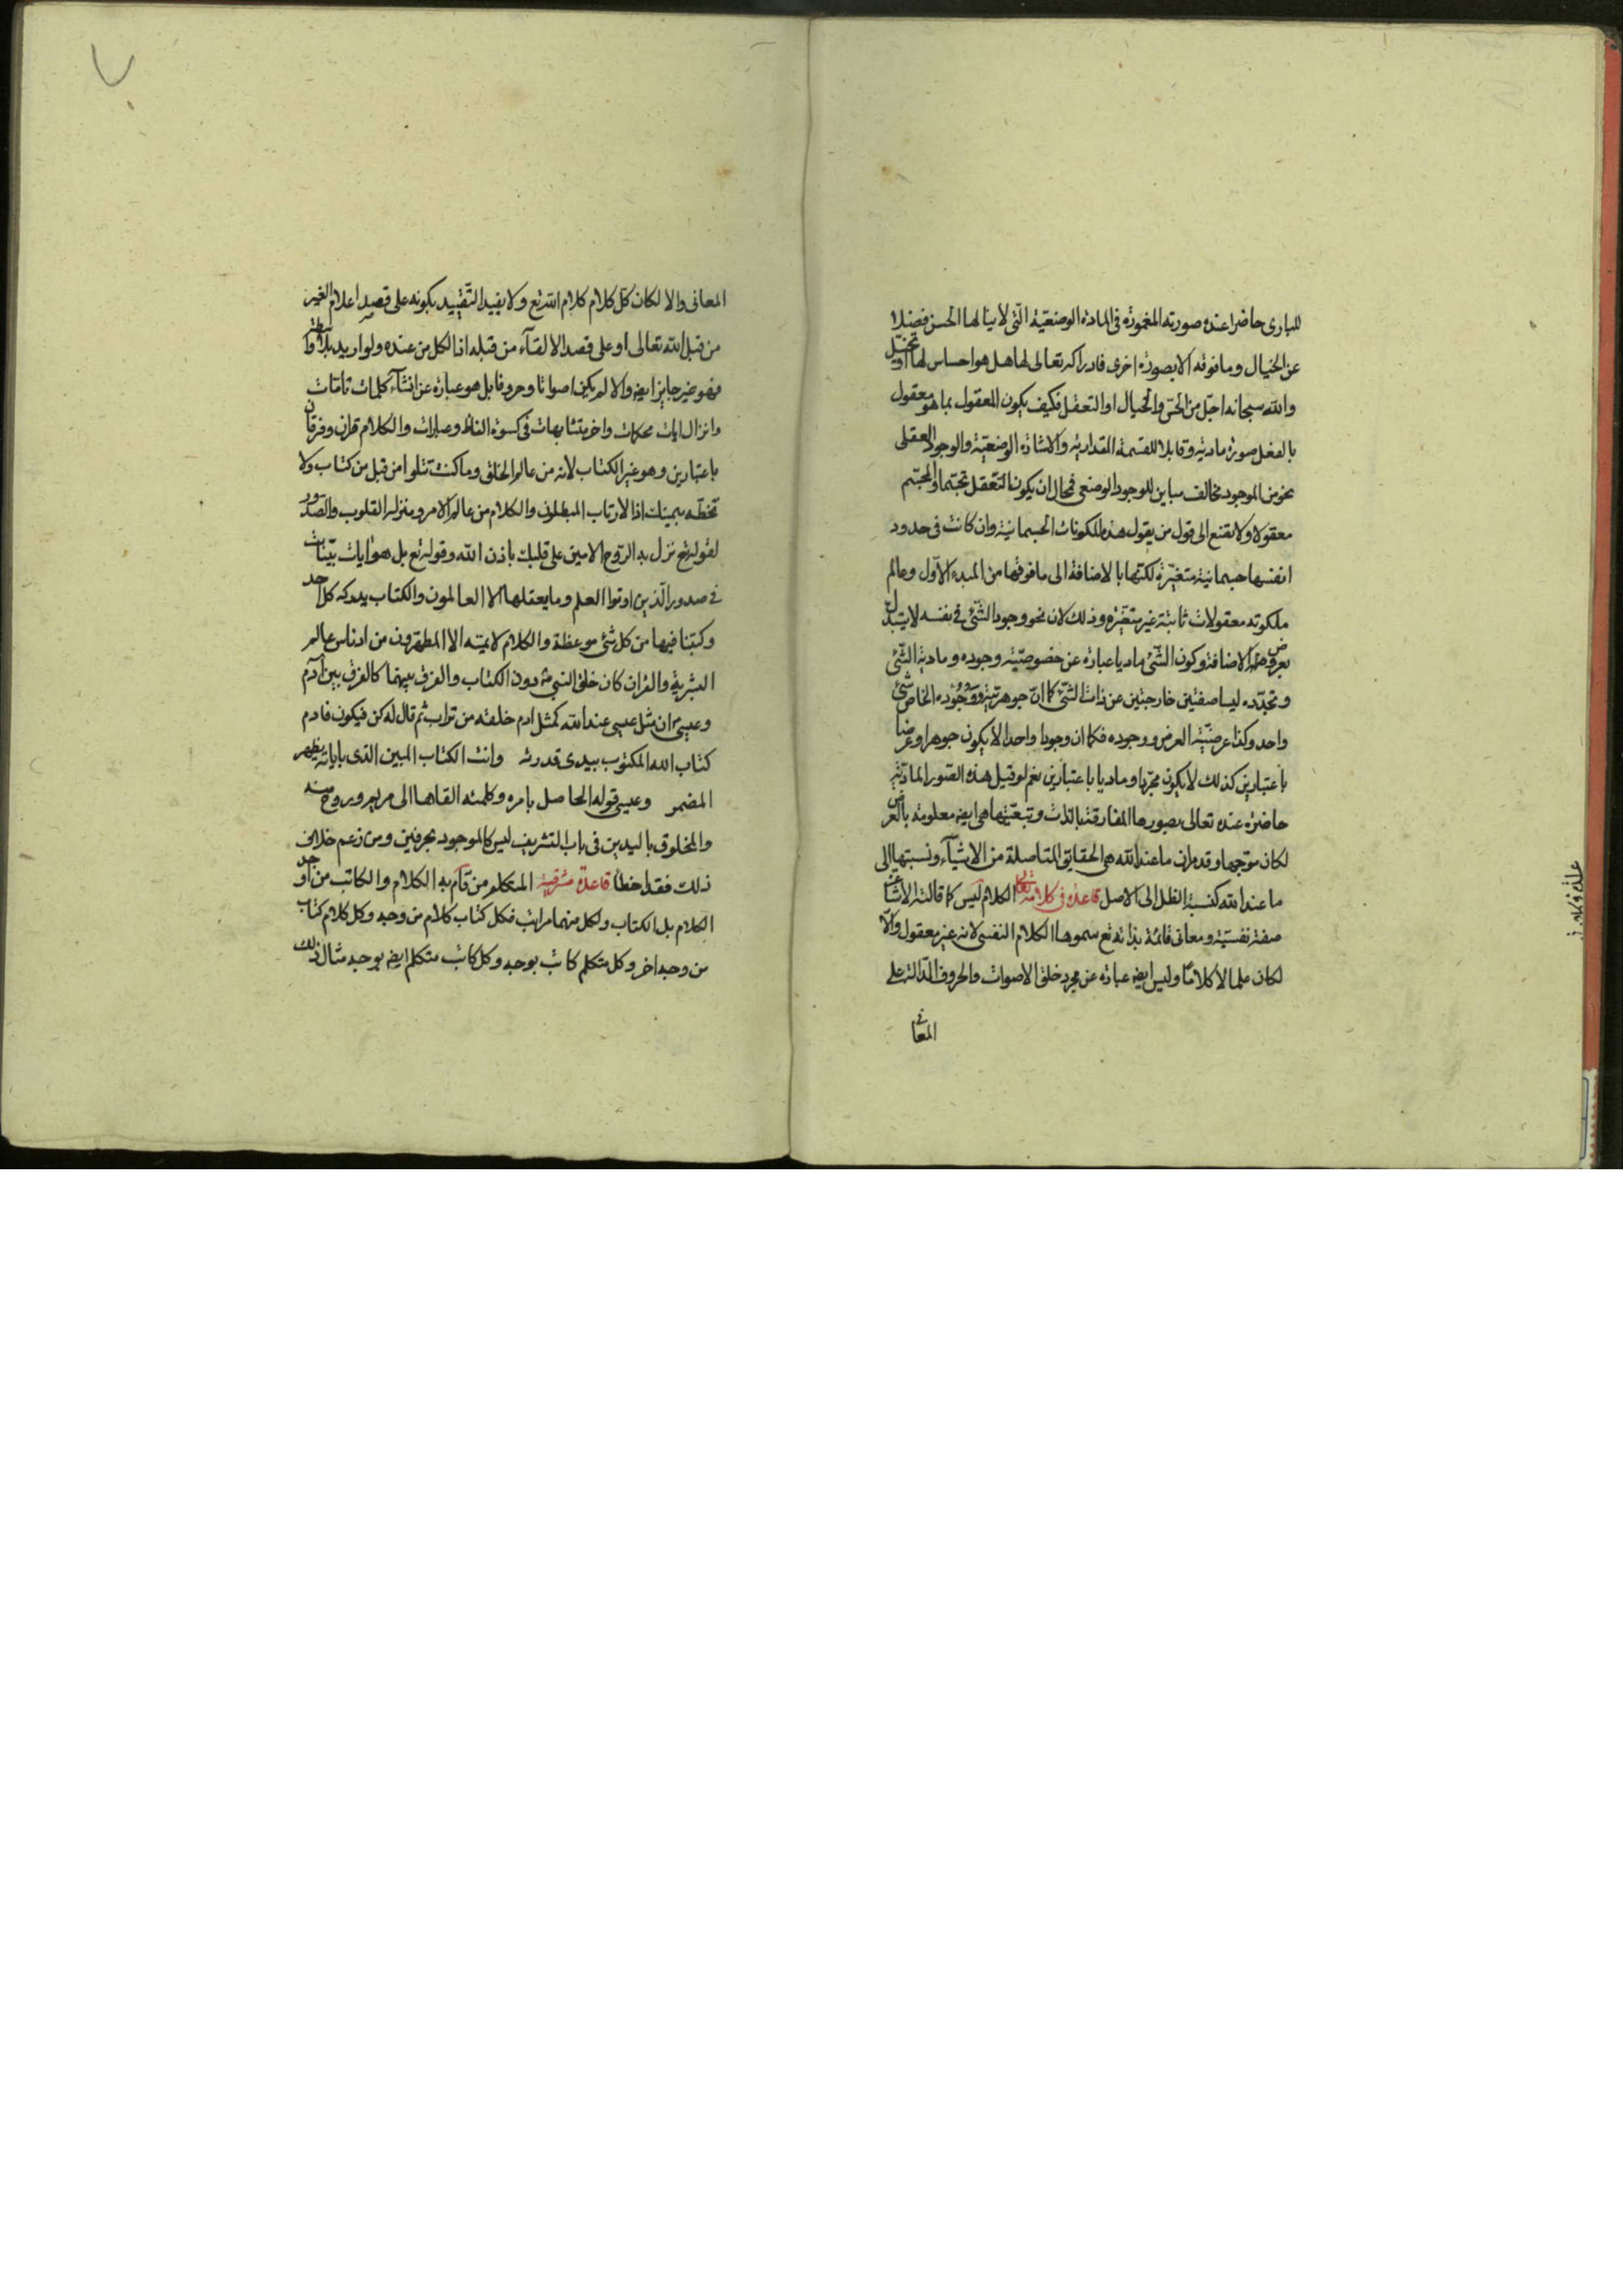 للباری حاضرا عنده صورته المغمورة فی المادة الوضعیّة الّتی لا ینالها الحس فضلا
عن الخیال وما فوقه الا بصورة اخری فادراکه تعالی لها هل هو احساس لها او تخیّل
والله سبحانه اجلّ من الحسّ والخیال او التعقل فکیف یکون المعقول بما هو معقول
بالفعل صورة مادیة وقابلا للقسمة المقداریة والاشارة الوضعیّة والوجود العقلی
نحو من الموجود مخالف مباین للوجود الوضعی فمحال ان یکون التعقل تجسّما او المجسّم
معقولا ولا تقنع الی قول من یقول هذه المکونات الجسمانیة وان کانت فی حدود
انفسها جسمانیة متغیّرة لکنّها بالاضافة الی ما فوقها من المبدء الاوّل وعالم
ملکوته معقولات ثابتة غیر متغیّرة وذلک لان نحو وجود الشّیٔ فی نفسه لا یتبدل
بعروض الاضافة وکون الشّیٔ مادیا عبارة عن خصوصیّة وجوده ومادیة الشّیٔ
وتجرّده لیسا صفتین خارجتین عن ذات الشّیٔ کما انّ جوهریّته ووجوده الخاص شیٔ
واحد وکذا عرضیّة العرض ووجوده فکما ان وجودا واحدا لا یکون جوهرا وعرضا
باعتبارین کذلک لا یکون مجرّدا ومادیا باعتبارین نعم لو قیل هذه الصّور المادّیّة
حاضرة عنده تعالی بصورها المفارقة بالذّات وتبعیّتها هی ایضه معلومة بالعرض
لکان موجّها وقد مر ان ما عند الله هی الحقایق المتاصلة من الاشیآء ونسبتها الی
ما عند الله کنسبة الظل الی الاصل قاعدة فی کلامه تعالی الکلام لیس کما قالته الاشاعرة
صفة نفسیّة ومعانی قائمة بذاته تع سموها الکلام النفسی لانه غیر معقول والّا
لکان علما لا کلاما ولیس ایضه عبارة عن مجرد خلق الاصوات والحروف الدّالة علی
المعانی
المعانی والا لکان کلّ کلام کلام الله تع ولا یفید التّقیید بکونه علی قصد اعلام الغیر
من قبل الله تعالی او علی قصد الالقآء من قبله اذ الکل من عنده ولو ارید بلا واسطة
فهو غیر جایز ایضه والا لم یکن اصواتا وحروفا بل هو عبارة عن انشآء کلمات تامّات
وانزال ایات محکمات واخر متشابهات فی کسوة الفاظ وعبارات والکلام قران وفرقان
باعتبارین وهو غیر الکتاب لانه من عالم الخلق وما کنت تتلوا من قبل من کتاب ولا
تخطّه بیمینک اذا لارتاب المبطلون والکلام من عالم الامر ومنزله القلوب والصّدور
لقوله تع نزل به الرّوح الامین علی قلبک باذن الله وقوله تع بل هو ایات بیّنات
فی صدور الّذین اوتوا العلم وما یعقلها الا العالمون والکتاب یدرکه کل احد
وکتبنا فیها من کل شیٔ موعظة والکلام لا یمسّه الا المطهّرون من ادناس عالم
البشریة والقران کان خلق النبی ص دون الکتاب والفرق بینهما کالفرق بین آدم
وعیسی ع ان مثل عیسی عند الله کمثل ادم خلقه من تراب ثم قال له کن فیکون فادم
کتاب الله المکتوب بیدی قدرته وانت الکتاب المبین الذی بایاته یظهر
المضمر وعیسی قوله الحاصل بامره وکلمته القاها الی مریم وروح منه
والمخلوق بالیدین فی باب التشریف لیس کالموجود بحرفین ومن زعم خلاف
ذلک فقد اخطأ قاعدة مشرقیة المتکلم من قآم به الکلام والکاتب من اوجد
الکلام بل الکتاب ولکل منهما مراتب فکل کتاب کلام من وجه وکل کلام کتاب
من وجه اخر وکل متکلم کاتب بوجه وکل کاتب متکلم ایضه بوجه مثال ذلک